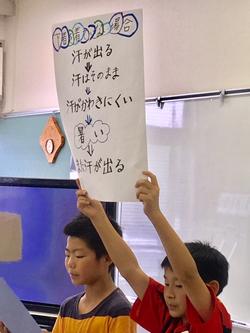 下着を着ない場合
汗が出る
汗はそのまま
汗がかわきにくい
暑い
また汗が出る